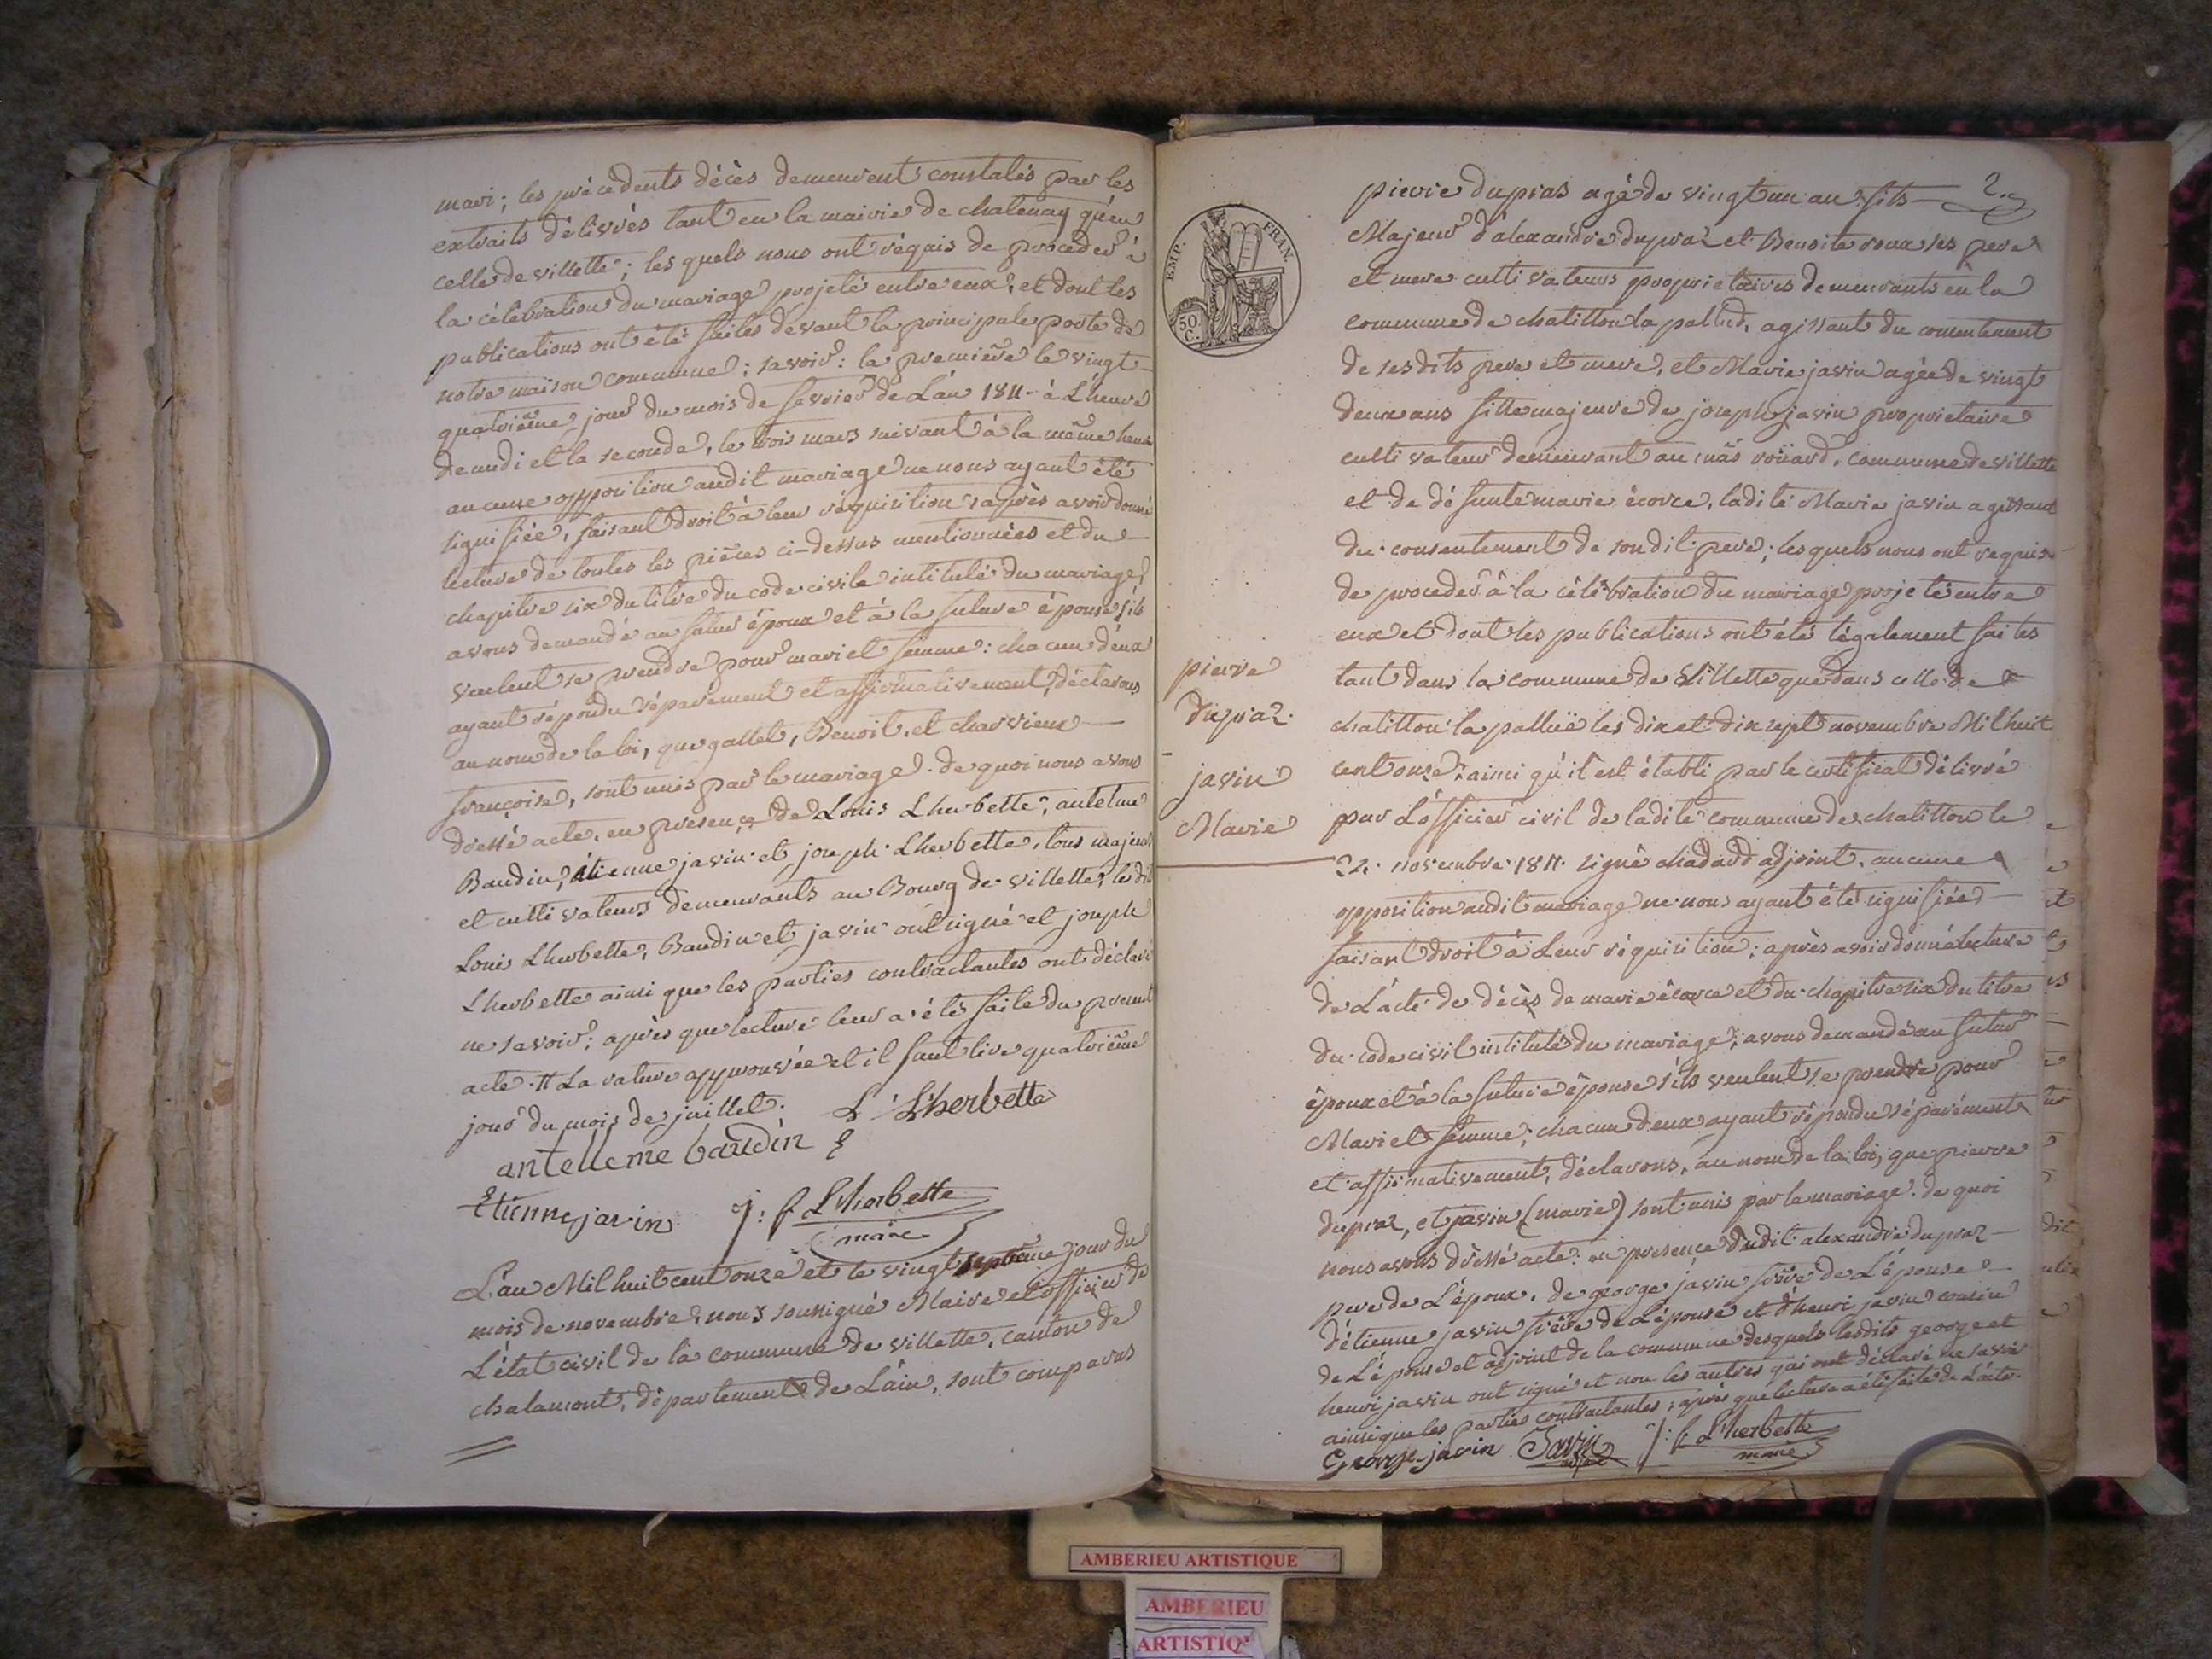 mari; les précedents décès demeurent constatés par les
extraits délivrés tant en la mairie de chatenay qu'en
celle de villette; les quels nous ont réquis de proceder à
la célébration du mariage projeté entre eux, et dont les
publications ont été faites devant la principale porte de
notre maison commune; savoir: la première le vingt
quatrième jour du mois de fevrier de L'an 1811 - à L'heure
de midi et la seconde, le trois mars suivant à la même heure
aucune opposition audit mariage ne nous ayant été
signifiée, faisant droit à leur réquisition, après avoir donné
lecture de toutes les pièces ci-dessus mentionnées et du
chapitre six du titre du code civile intitulé du mariage,
avons demandé au futur époux et à la future épouse s'ils
veulent se prendre pour mari et femme: chacun d'eux
ayant répondu séparément et affirmativement, déclarons
au nom de la loi, que gallet, Benoit, et charvieux
françoise, sont unis par le mariage. de quoi nous avons
dressé acte, en presence de Louis Lherbette, antelme
Baudin, étienne javin et joseph Lherbette, tous majeurs
et cultivateurs demeurants au Bourg de villette, lesdits
Louis Lherbette, Baudin et javin ont signé et joseph
Lherbette ainsi que les parties contractantes ont déclaré
ne savoir; après que lecture leur a été faite du present
acte. La rature approuvée et il faut lire quatrième
jour du mois de juillet. L. L'herbette
antelleme baudin
Etienne javin J: f. L'herbette
maire
L'an Mil huit cent onze et le vingt septième jour du
mois de novembre, nous soussigné Maire et officier de
L'état civil de la commune de villette, canton de
chalamont, département de L'ain, sont comparus
2.
EMP. FRAN.
50 C.
pierre dupras agé de vingt un an fils
Majeur d'alexandre dupraz et Benoite roux ses pere
et mere cultivateurs proprietaires demeurants en la
commune de chatillon la pallud, agissant du consentement
de sesdits pere et mere, et Marie javin agée de vingt
deux ans fille majeure de joseph javin proprietaire
cultivateur demeurant au mas roüard, commune de villette
et de défunte marie écorce, ladite Marie javin agissant
du consentement de son dit pere; lesquels nous ont requis
de proceder à la célébration du mariage projeté entre
eux et dont les publications ont été légalement faites
tant dans la commune de Villette que dans celle de
chatillon la palluë les dix et dix sept novembre Mil huit
cent onze, ainsi qu'il est établi par le certificat délivré
par L'officier civil de ladite commune de chatillon le
22 novembre 1811 signé chadard adjoint. aucune
opposition audit mariage ne nous ayant été signifiée
faisant droit à Leur réquisition; après avoir donné lecture
de L'acte de décès de marie écorce et du chapitre six du titre
du code civil intitulé du mariage, avons demandé au futur
époux et à la future épouse s'ils veulent se prendre pour
Mari et femme; chacun deux ayant répondu séparément
et affirmativement, déclarons, au nom de la loi, que pierre
dupraz, et javin (marie) sont unis par le mariage. de quoi
nous avons dressé acte: en presence dudit alexandre dupraz
pere de L'époux, de george javin frère de L'épouse
d'étienne javin frère de L'épouse et d'henri javin cousin
de L'épouse et adjoint de la commune desquels lesdits george et
henri javin ont signé et non les autres qui ont déclaré ne savoir
ainsi que les parties contractantes; après que lecture a été faite de L'acte.
George javin Javin J: f. L'herbette
adjoint maire
pierre
dupraz
javin
Marie
AMBERIEU ARTISTIQUE
AMBERIEU
ARTISTIQ